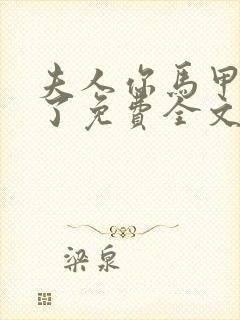 夫人你馬甲
了免費全文
梁泉